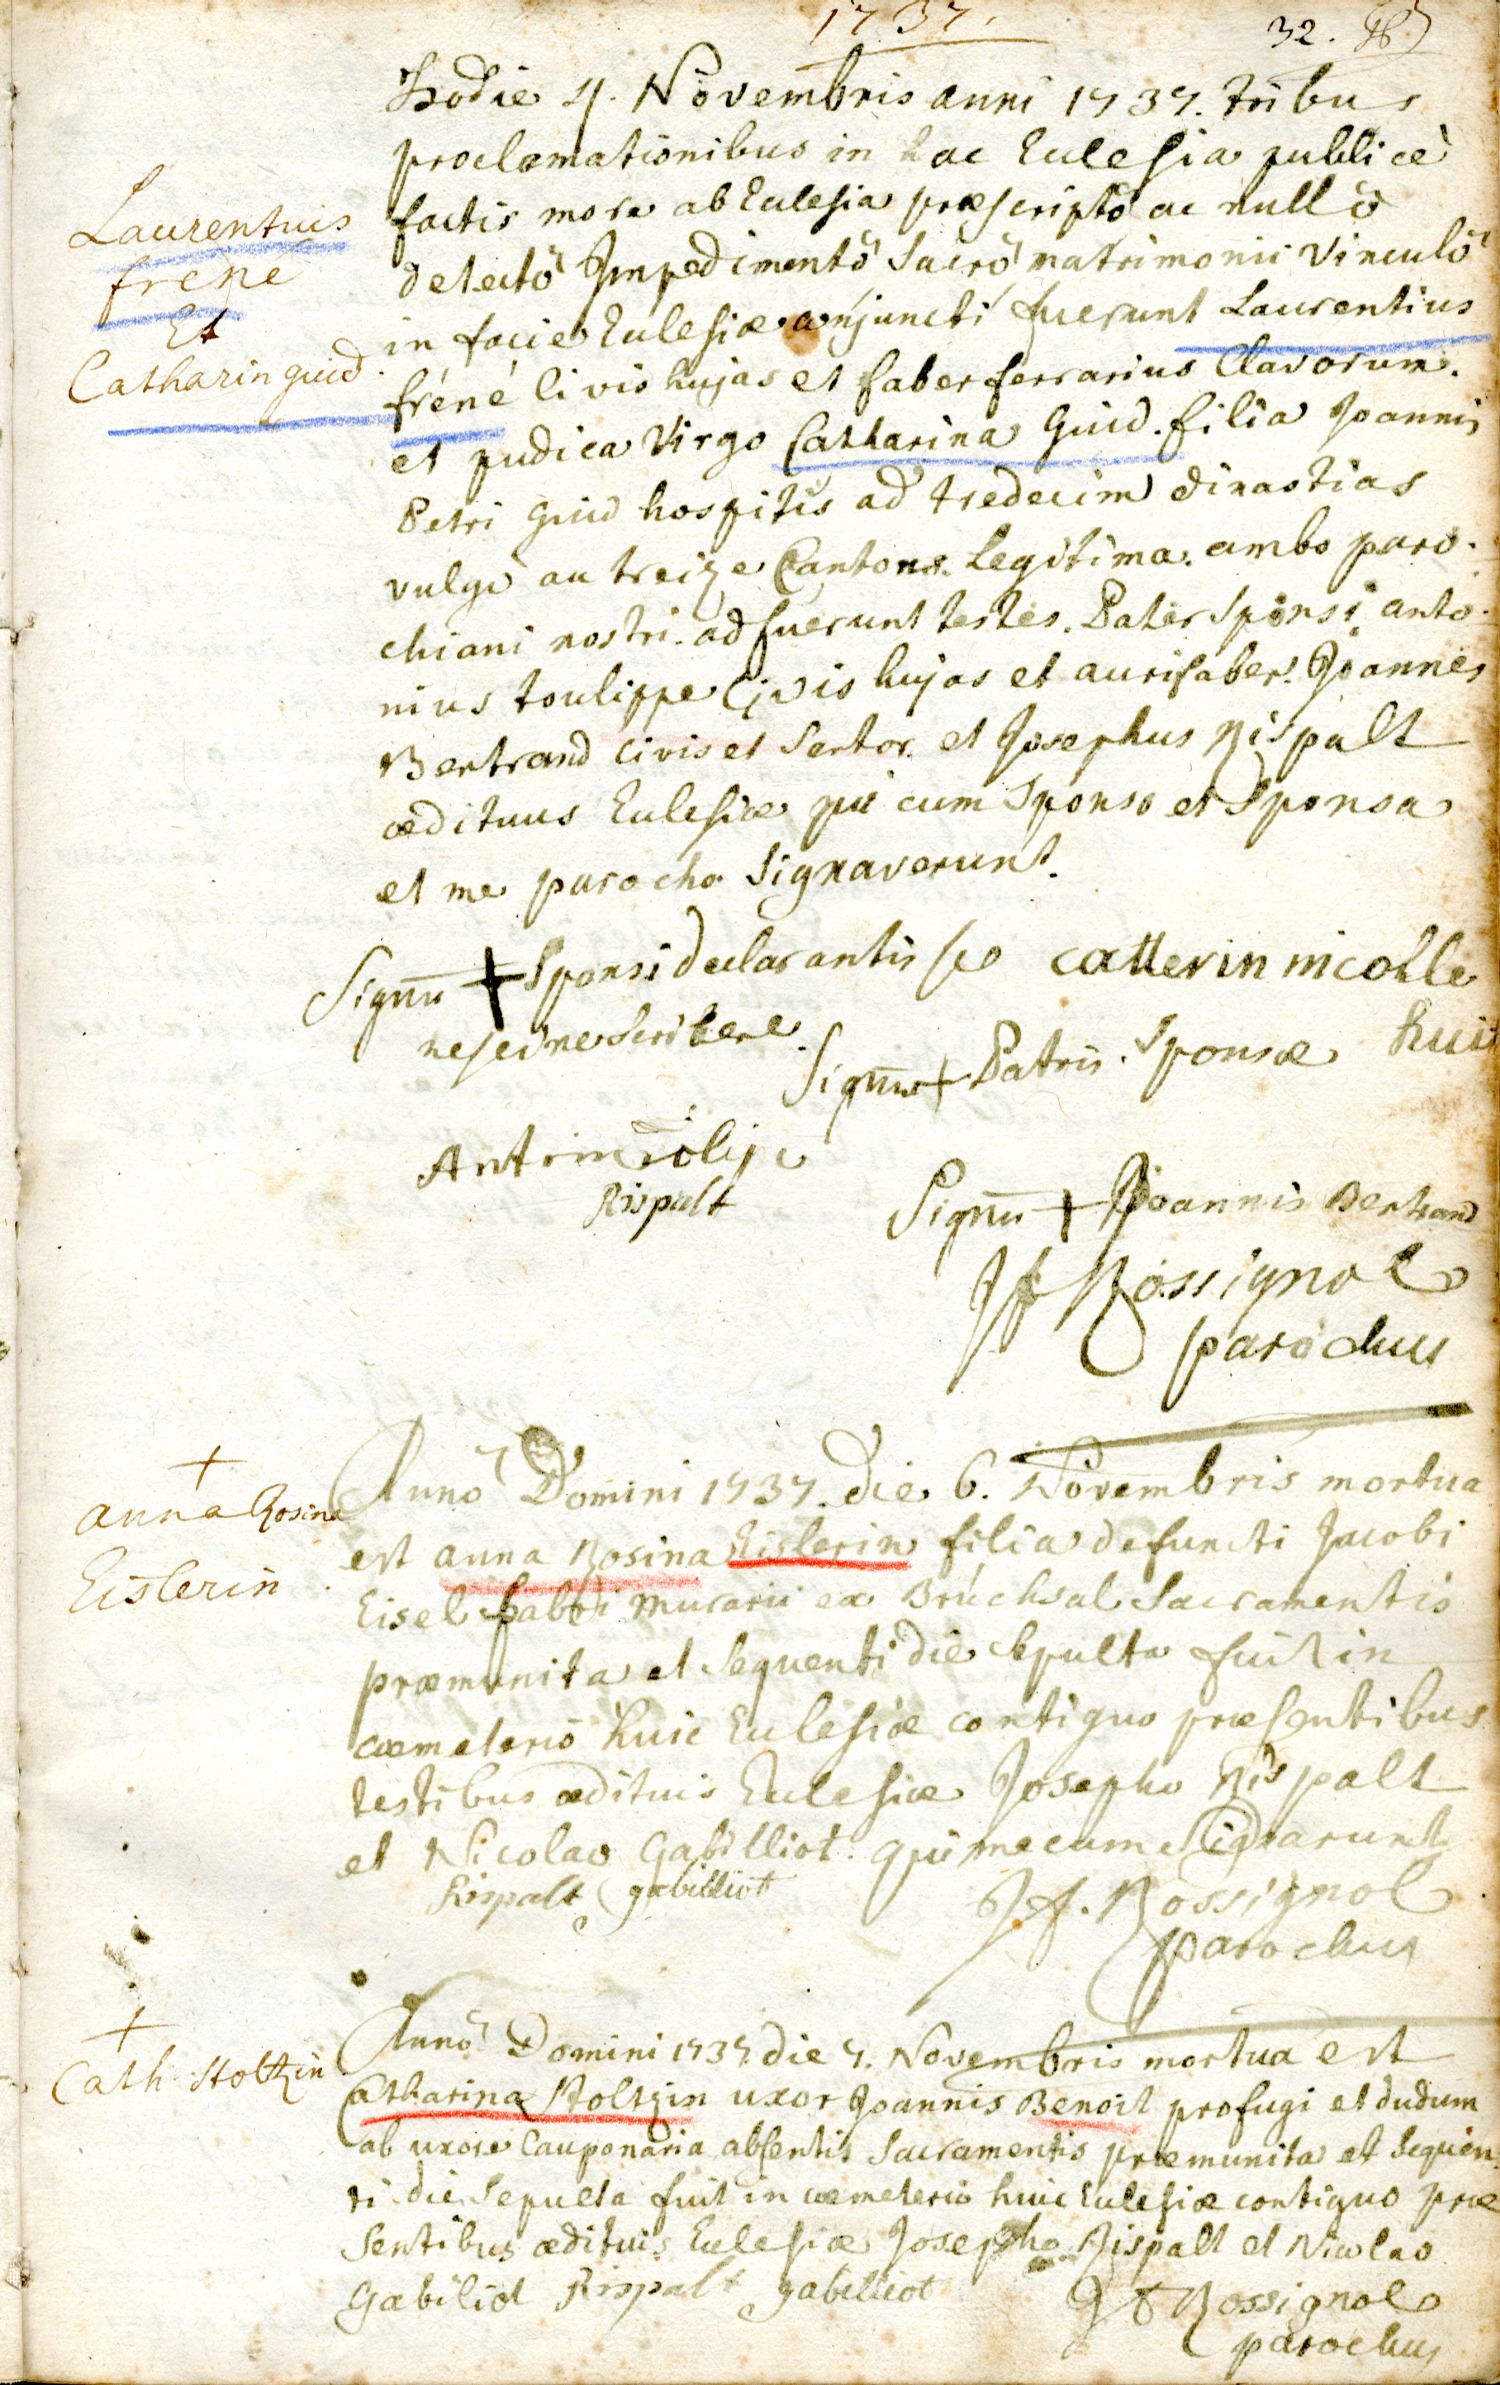 1737.
32.
Hodie 4. Novembris anni 1737. tribus
proclamationibus in hac Ecclesia publicè
factis more ab Ecclesia præscriptô ac nullô
detectô Impedimentô Sacrô matrimonii Vinculô
in facie Ecclesiæ conjuncti fuerunt Laurentius
fréné Civis hujas et faber ferrarius Clavorum.
et pudica Virgo Catharina Guid. filia Joannis
Petri Guid hospitis ad tredecim dinastias
vulgò au treize Cantons. Legitima. ambo paro-
chiani nostri. adfuerunt testes. Pater Sponsi, anto-
nius toulippe Civis hujas et aurifaber. Joannes
Bertrand Civis et Sartor. et Josephus Rispalt
ædituus Ecclesiæ qui cum Sponso et Sponsa
et me parocho Signaverunt.
Laurentius
frene
Et
Catharin guid.
Signū + Sponsi declarantis se
nescire scribere.
catterin nicolle
huit
Signū + Patris Sponsæ
Antoin tolipe
Rispalt
Signū + Joannis Bertrand
Jf Rossignol
parochus
+
anna Rosina
Eislerin
Annô Domini 1737. die 6. Novembris mortua
est anna Rosina Eislerin filia defuncti Jacobi
Eisel fabri murarii ex Bruchsal Sacramentis
præmunita et Sequenti die Sepulta fuit in
cæmeteriô huic Ecclesiæ contiguo præsentibus
testibus ædituis Ecclesiæ Josepho Rispalt
et Nicolao Gabilliot. qui mecum Signarunt
Rispalt gabilliot
Jf. Rossignol
parochus
+
Cath Stoltzin
Annô Domini 1737. die 7. Novembris mortua est
Catharina Stoltzin uxor Joannis Benoit profugi et dudum
ab uxore Cauponaria absentis Sacramentis præmunita et Sequen-
ti die Sepulta fuit in cæmeteriô huic Ecclesiæ contiguo præ
Sentibus ædituis Ecclesiæ Josepho Rispalt et Nicolao
Gabiliot Rispalt gabilliot
Jf Rossignol
parochus